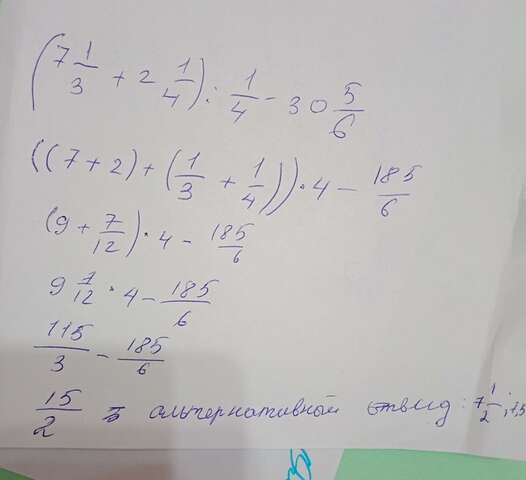 (7 1/3 + 2 1/4) : 1/4 - 30 5/6
((7 + 2) + (1/3 + 1/4)) · 4 - 185/6
(9 + 7/12) · 4 - 185/6
9 7/12 · 4 - 185/6
115/3 - 185/6
15/2 альтернативной вид: 7 1/2; 7,5